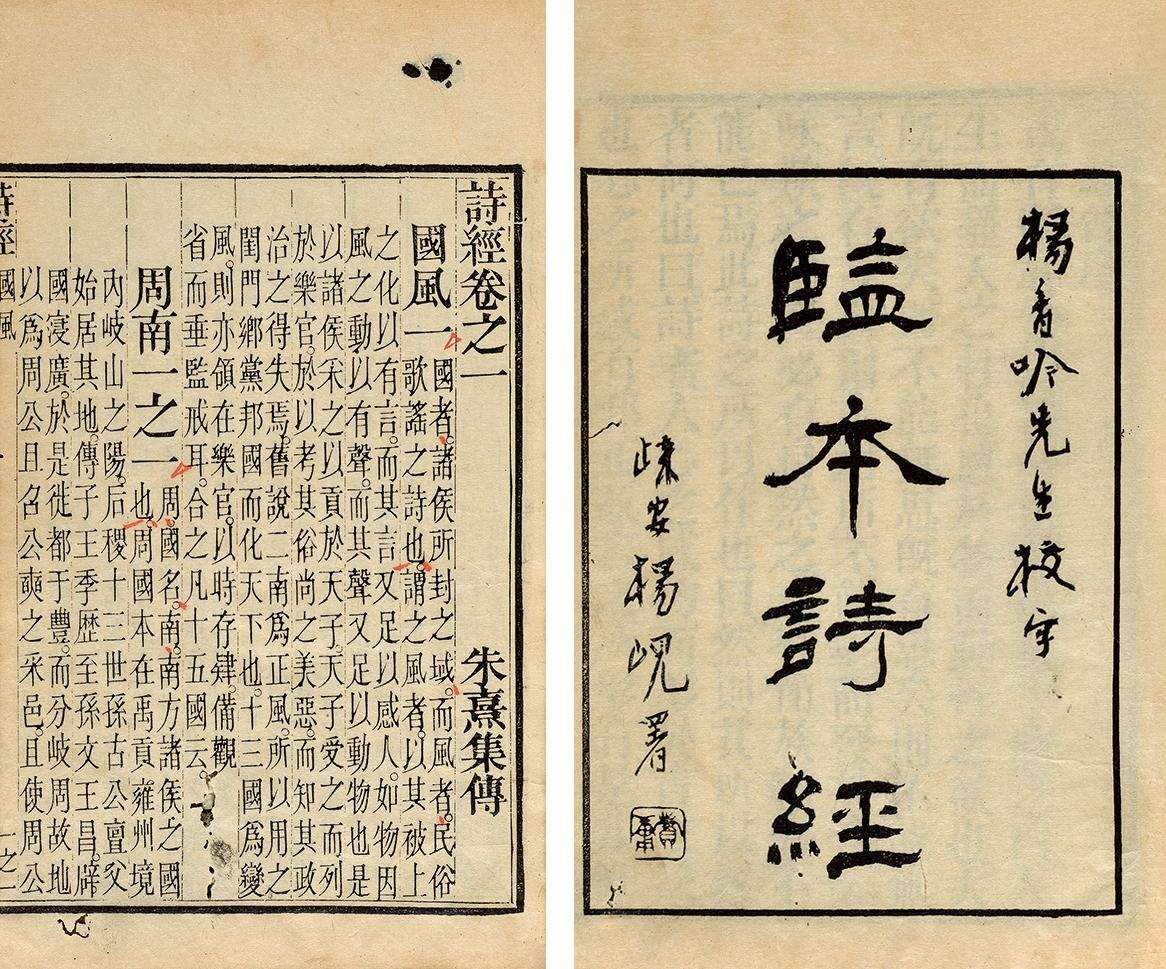 楊香吟先生校字
監本詩經
歸安楊峴署
詩經卷之一 朱熹集傳
國風一
國者。諸侯所封之域。而風者。民俗
歌謠之詩也。謂之風者。以其被上
之化以有言。而其言又足以感人。如物因
風之動以有聲。而其聲又足以動物也。是
以諸侯采之以貢於天子。天子受之而列
於樂官。於以考其俗尚之美惡。而知其政
治之得失焉。舊說二南爲正風。所以用之
閨門鄉黨邦國而化天下也。十三國爲變
風。則亦領在樂官。以時存肄。備觀
省而垂監戒耳。合之凡十五國云。
周南一之一
周。國名。南。南方諸侯之國
也。周國本在禹貢雍州境
內岐山之陽。后稷十三世孫古公亶父
始居其地。傳子王季歷至孫文王昌。辟
國寖廣。於是徙都于豐。而分岐周故地
以爲周公旦召公奭之采邑。且使周公
詩經 國風